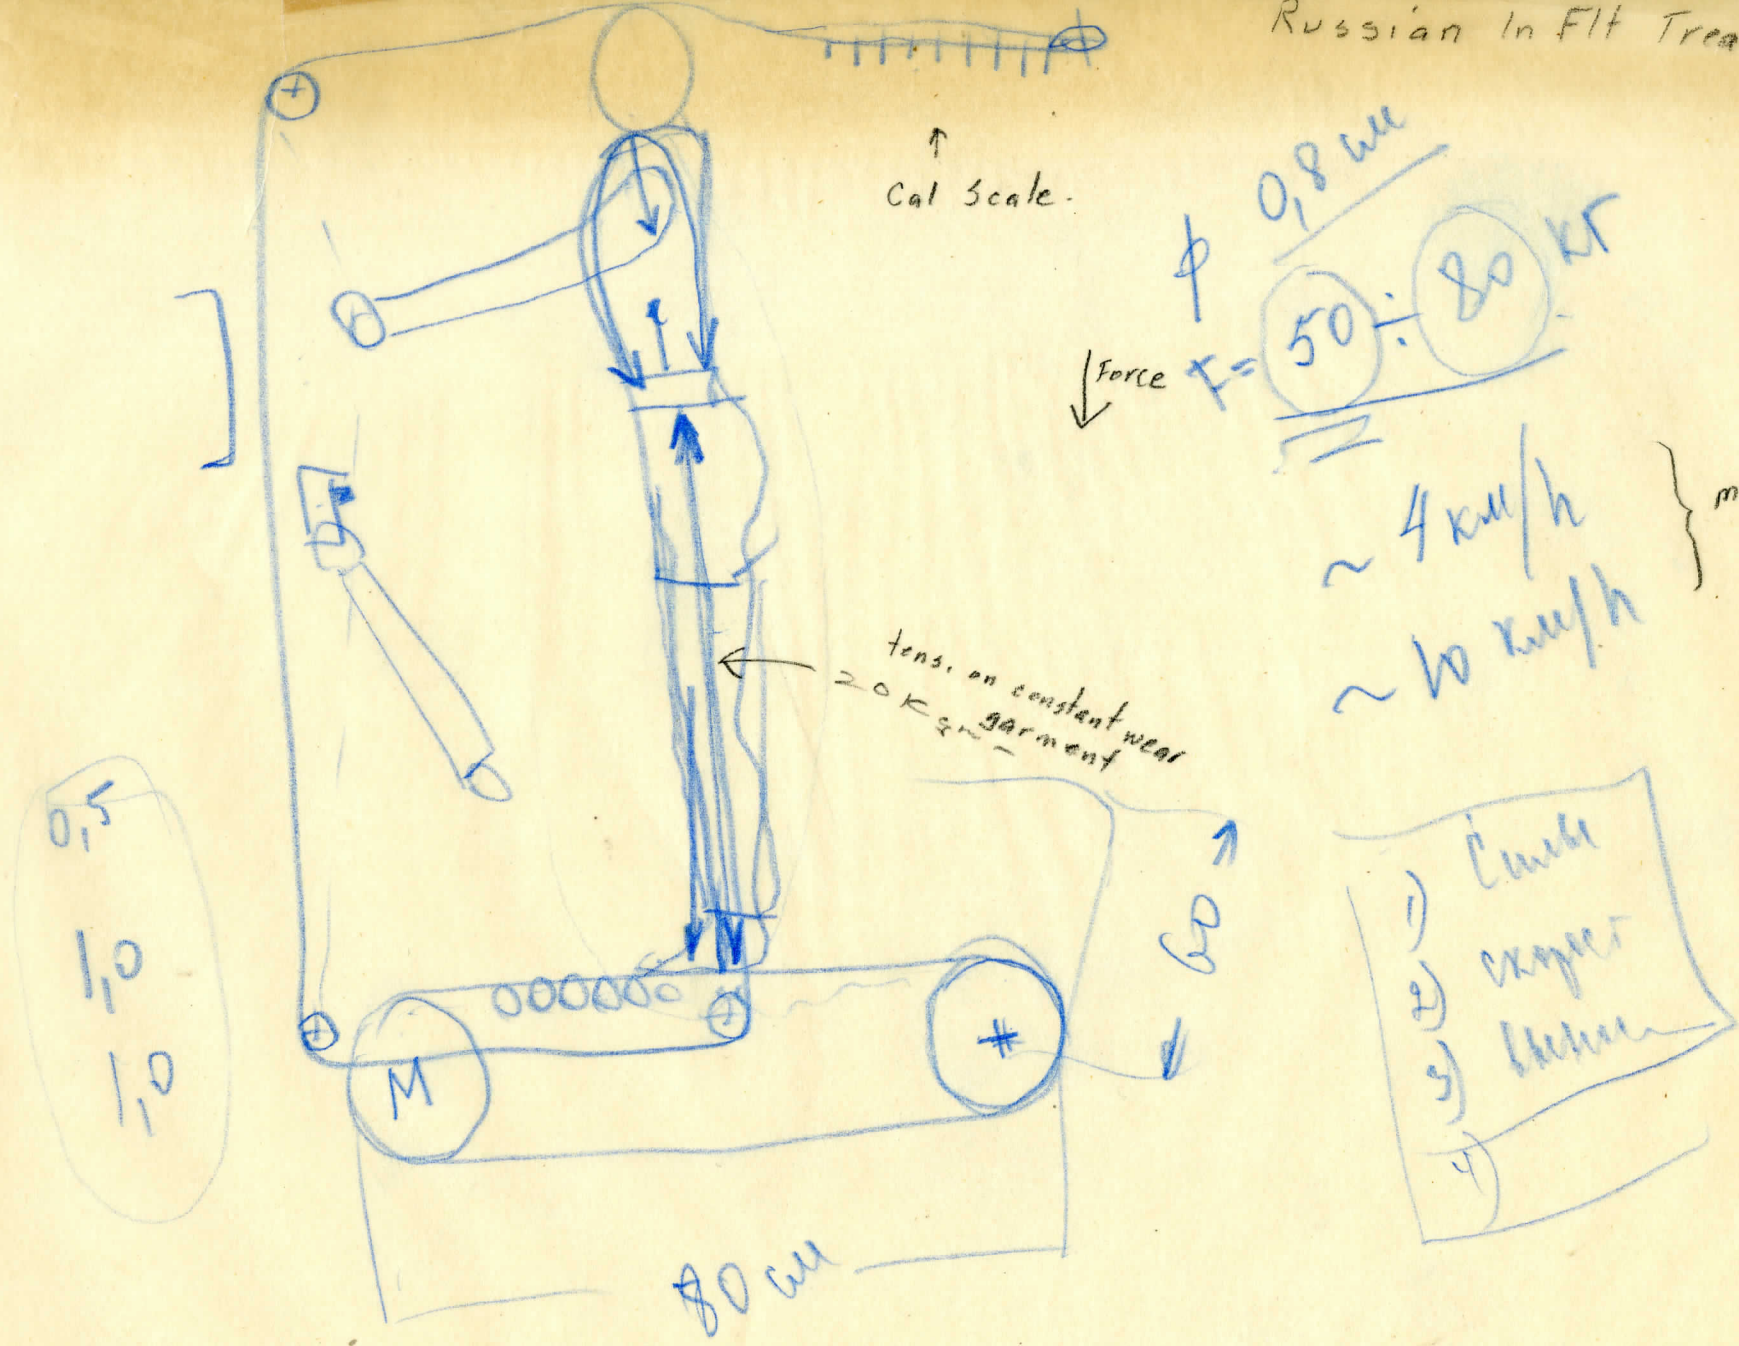 Russian In Flt Trea
↑
Cal Scale.
0,8 см
ϕ
Force
F= 50 ÷ 80 кг
~ 4 км/h
~ 10 км/h
m
tens. on constant wear
garment
20 Kgm
0,5
1,0
1,0
60
M
80 см
1) Силы
2)
3)
4)